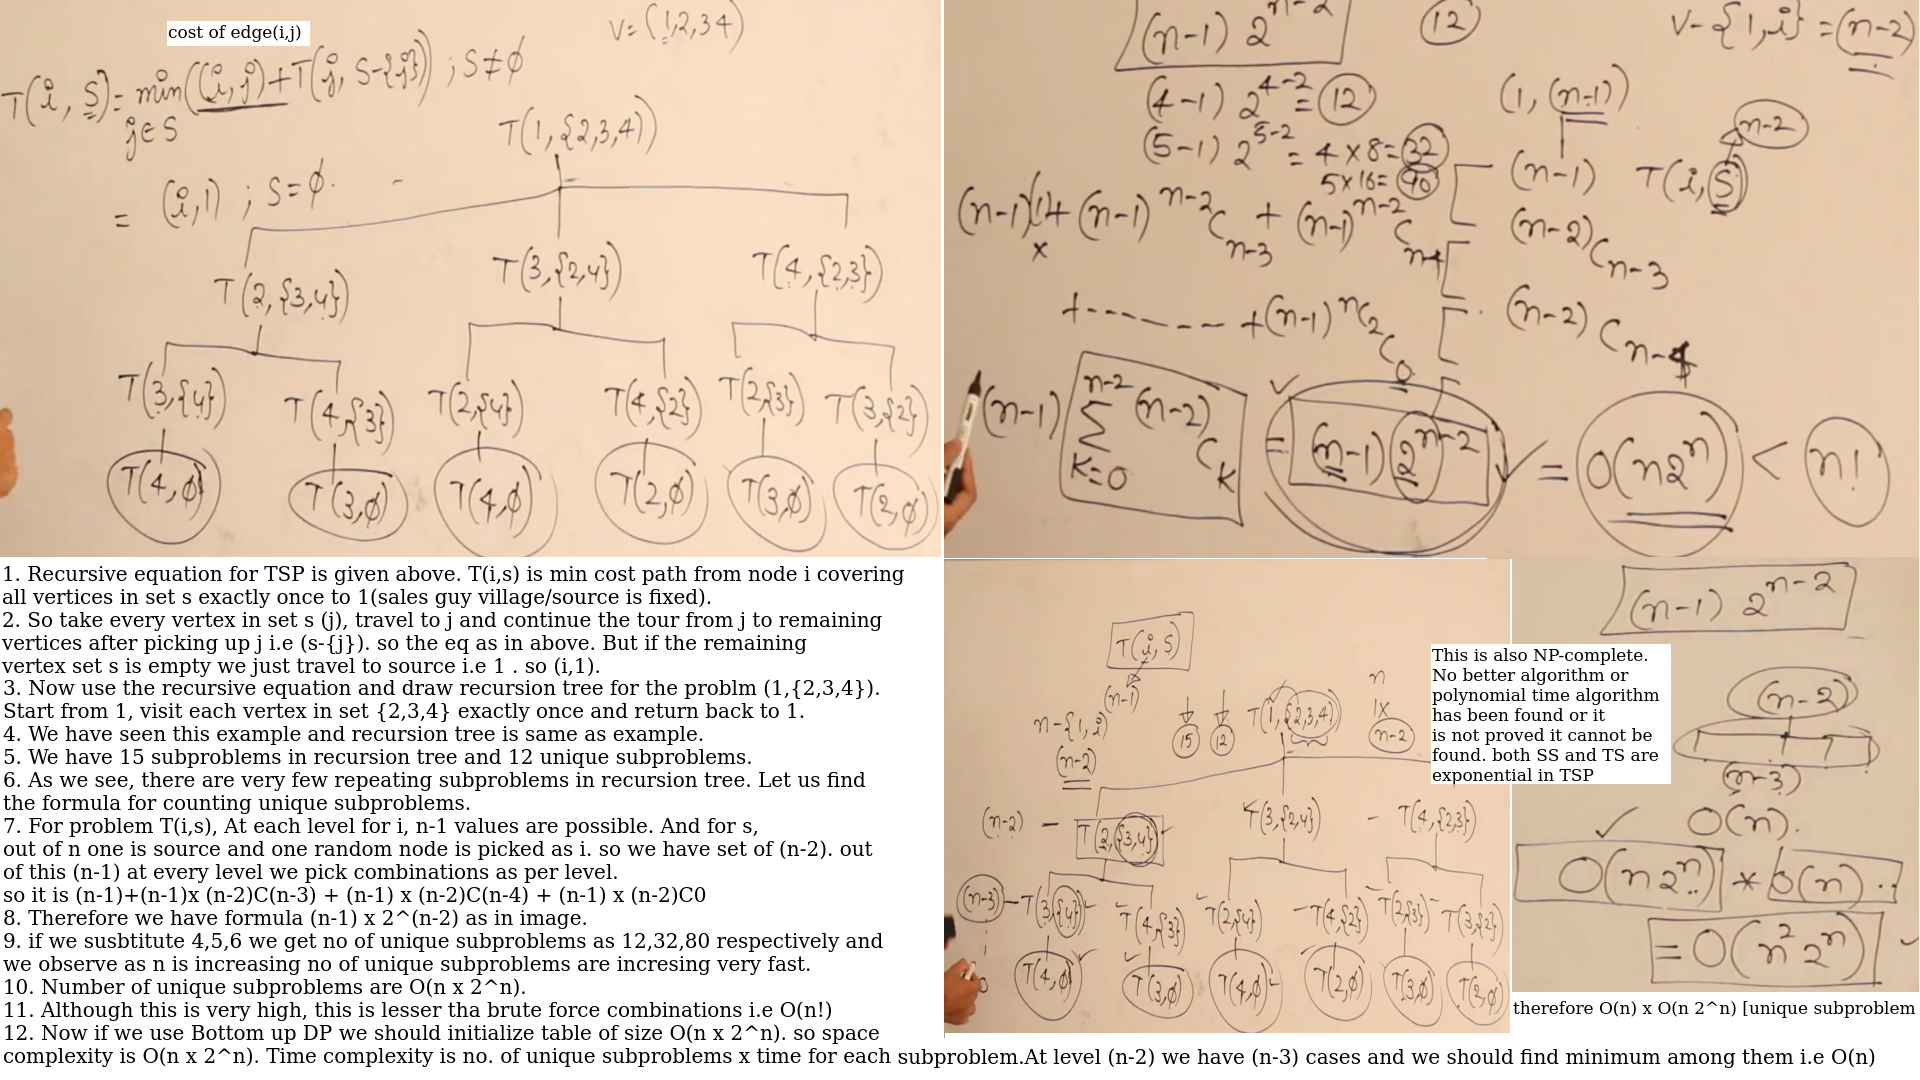 cost of edge(i,j)
V=(1,2,3 4)
T(i, S)= min((i,j)+T(j, S-{j})) ; S≠ϕ
j∈S
= (i,1) ; S=ϕ.
T(1,{2,3,4})
T(2,{3,4}) T(3,{2,4}) T(4,{2,3})
T(3,{4}) T(4,{3}) T(2,{4}) T(4,{2}) T(2,{3}) T(3,{2})
T(4,ϕ) T(3,ϕ) T(4,ϕ) T(2,ϕ) T(3,ϕ) T(2,ϕ)
(n-1) 2^n-2 12 V-{1,i} = (n-2)
(4-1) 2^4-2 = 12 (1, (n-1))
(5-1) 2^5-2 = 4 x 8 = 32 n-2
5x16= (n-1) T(i,S)
(n-1)(1+ (n-1) n-2 C n-3 + (n-1) n-2 C n-4 (n-2) C n-3
x
+ - - - - - - + (n-1) n-2 C 0 (n-2) C n-4
(n-1) n-2 Σ K=0 (n-2) C K = (n-1) 2^n-2 = O(n2^n) < n!
1. Recursive equation for TSP is given above. T(i,s) is min cost path from node i covering
all vertices in set s exactly once to 1(sales guy village/source is fixed).
2. So take every vertex in set s (j), travel to j and continue the tour from j to remaining
vertices after picking up j i.e (s-{j}). so the eq as in above. But if the remaining
vertex set s is empty we just travel to source i.e 1 . so (i,1).
3. Now use the recursive equation and draw recursion tree for the problm (1,{2,3,4}).
Start from 1, visit each vertex in set {2,3,4} exactly once and return back to 1.
4. We have seen this example and recursion tree is same as example.
5. We have 15 subproblems in recursion tree and 12 unique subproblems.
6. As we see, there are very few repeating subproblems in recursion tree. Let us find
the formula for counting unique subproblems.
7. For problem T(i,s), At each level for i, n-1 values are possible. And for s,
out of n one is source and one random node is picked as i. so we have set of (n-2). out
of this (n-1) at every level we pick combinations as per level.
so it is (n-1)+(n-1)x (n-2)C(n-3) + (n-1) x (n-2)C(n-4) + (n-1) x (n-2)C0
8. Therefore we have formula (n-1) x 2^(n-2) as in image.
9. if we susbtitute 4,5,6 we get no of unique subproblems as 12,32,80 respectively and
we observe as n is increasing no of unique subproblems are incresing very fast.
10. Number of unique subproblems are O(n x 2^n).
11. Although this is very high, this is lesser tha brute force combinations i.e O(n!)
12. Now if we use Bottom up DP we should initialize table of size O(n x 2^n). so space
complexity is O(n x 2^n). Time complexity is no. of unique subproblems x time for each subproblem.At level (n-2) we have (n-3) cases and we should find minimum among them i.e O(n)
T(i, S)
(n-1)
n-{1,i} 15 12 T(1,{2,3,4}) n
1x
(n-2) n-2
(n-2) - T(2,{3,4}) T(3,{2,4}) - T(4,{2,3})
(n-3) - T(3,{4}) T(4,{3}) T(2,{4}) T(4,{2}) T(2,{3}) T(3,{2})
0 T(4,ϕ) T(3,ϕ) T(4,ϕ) T(2,ϕ) T(3,ϕ) T(2,ϕ)
This is also NP-complete.
No better algorithm or
polynomial time algorithm
has been found or it
is not proved it cannot be
found. both SS and TS are
exponential in TSP
(n-1) 2^n-2
(n-2)
(n-3)
O(n).
O(n2^n) * O(n)..
= O(n^2 2^n)
therefore O(n) x O(n 2^n) [unique subproblem